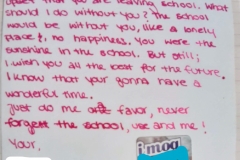 upset that you are leaving school. What
should I do without you? The school
would be without you, like a lonely
place!, no happiness. You were the
sunshine in the school. But still;
I wish you all the best for the future.
I know that your gonna have a
wonderful time.
Just do me favor, never
forget the school, us and me!
Your,
imog